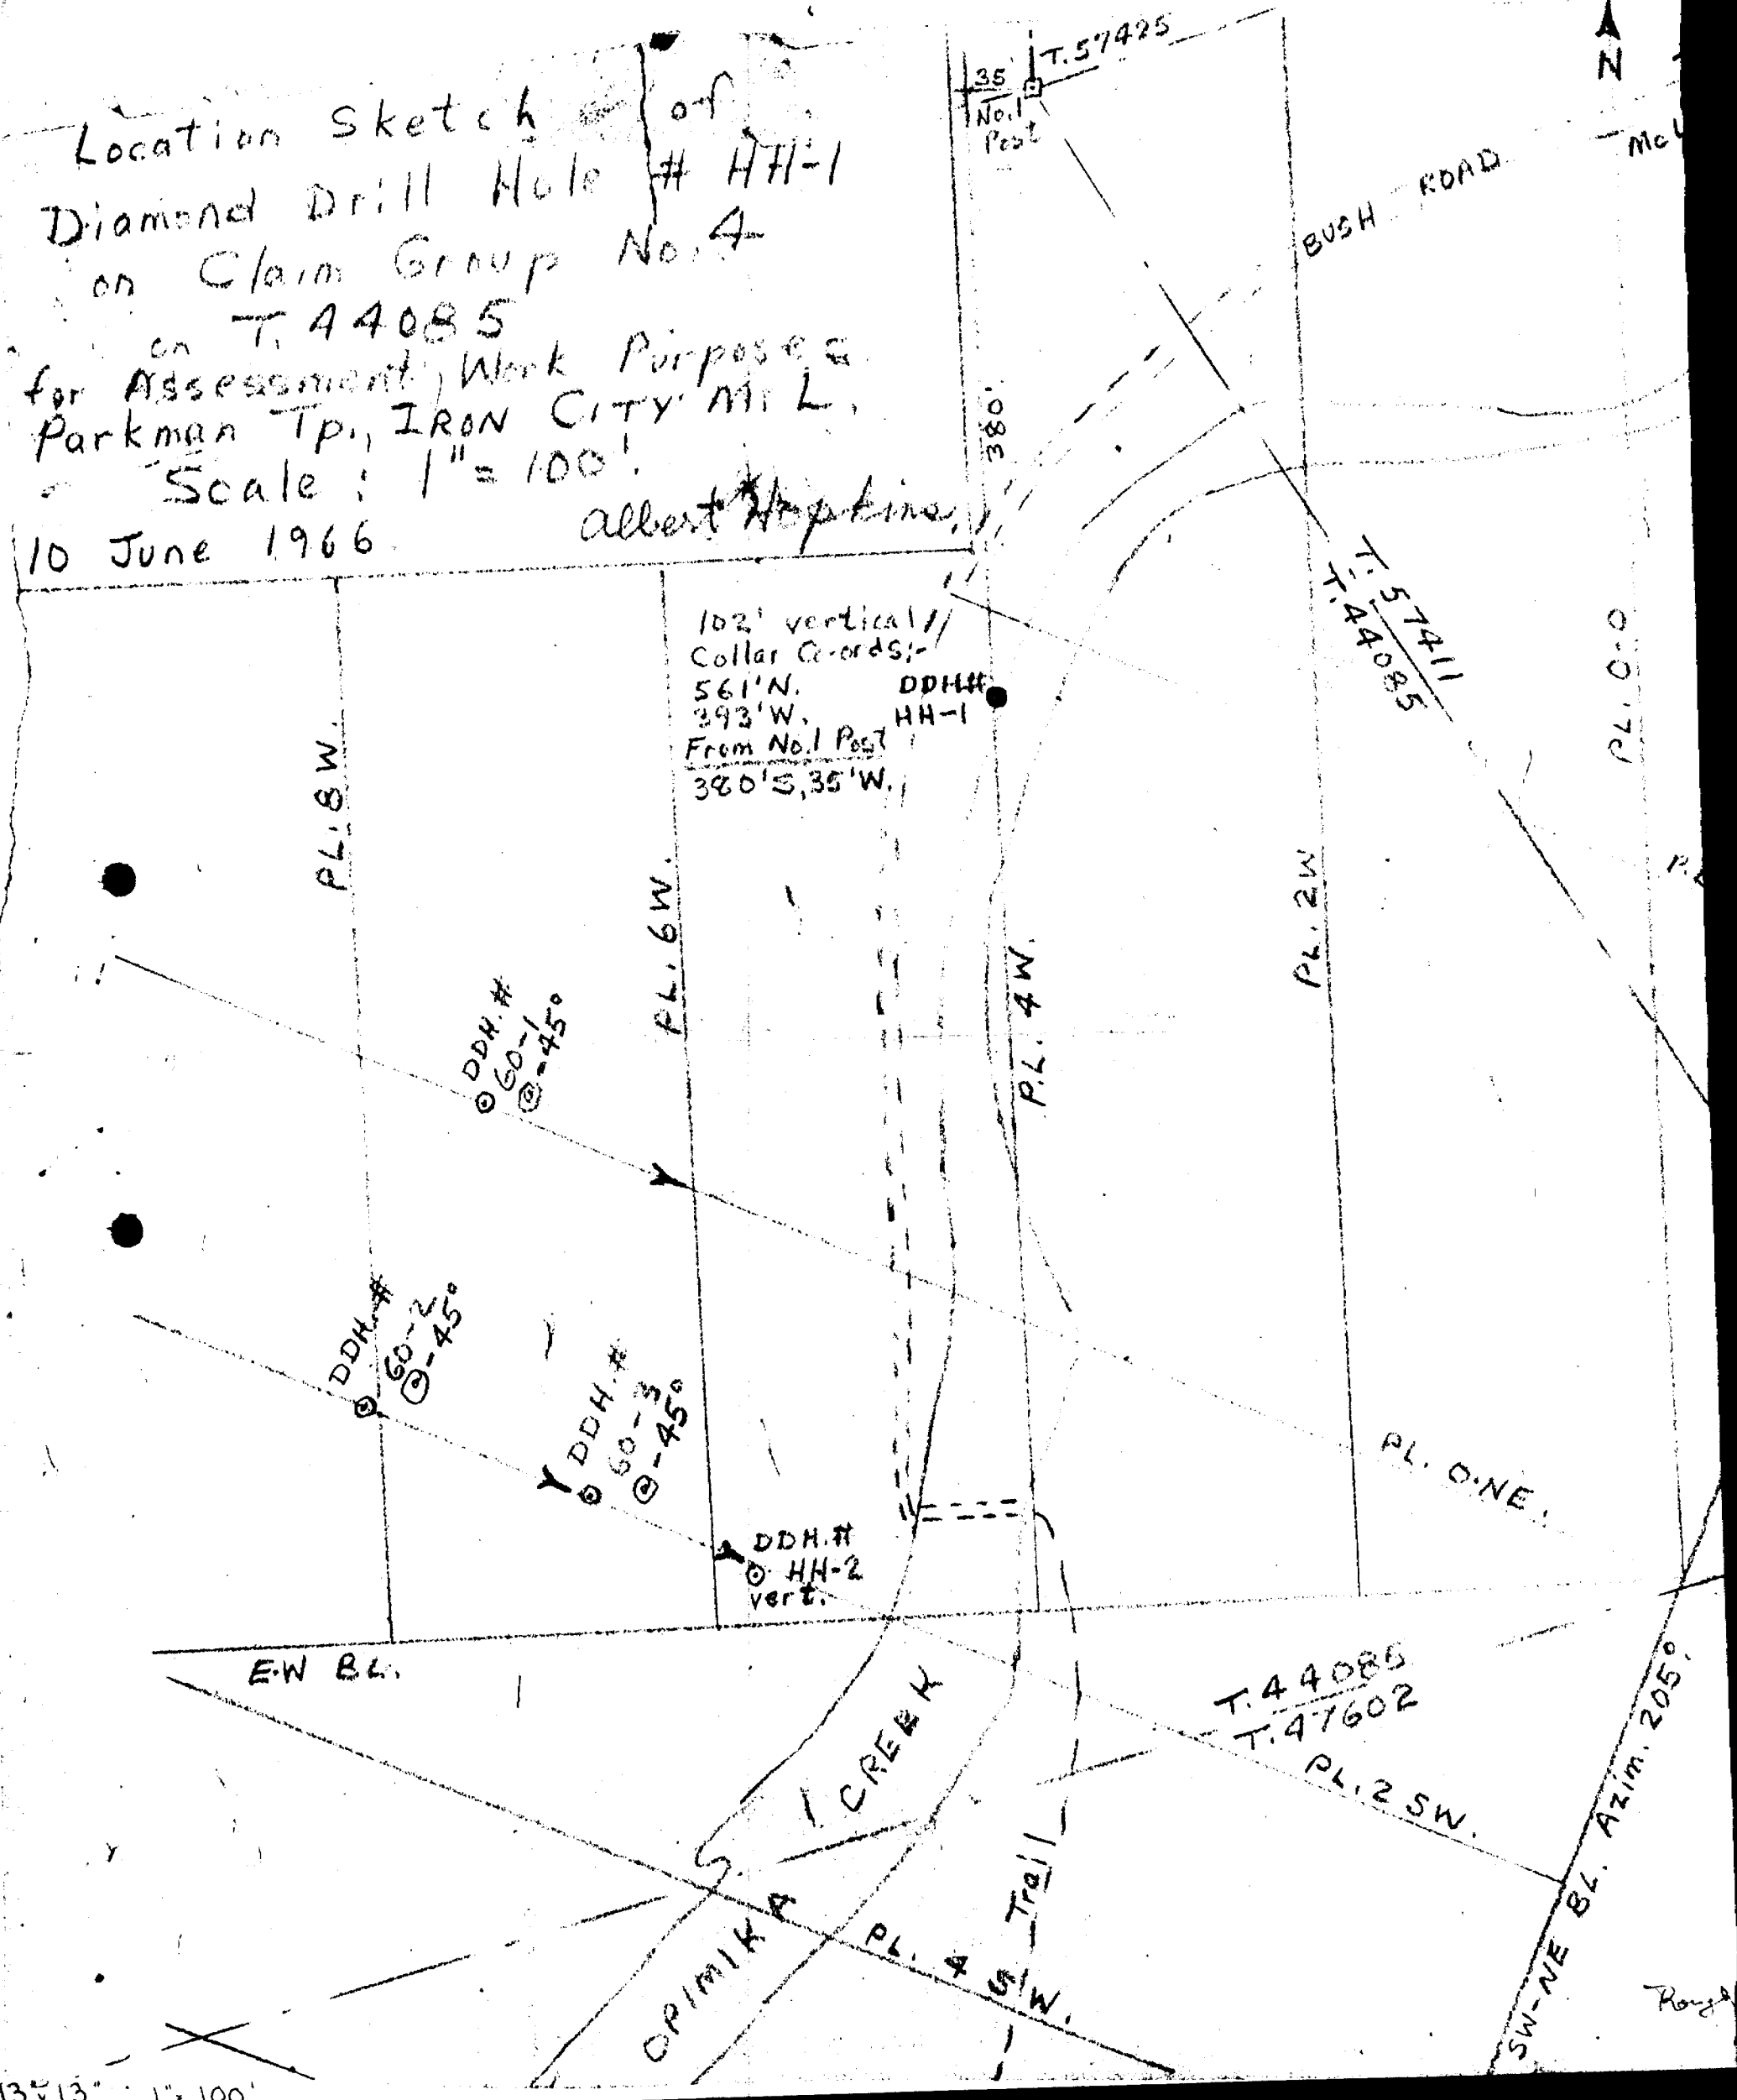 Location Sketch of
Diamond Drill Hole # HH-1
on Claim Group No. 4
on T. 44085
for Assessment Work Purposes
Parkman Tp., IRON CITY M. L.
Scale : 1" = 100'.
10 June 1966.
Albert Hopkins.
T. 57425
35'
No.1
Post
N
BUSH ROAD
380'
T. 57411
T. 44085
102' vertical
Collar Co-ords;-
561' N.
393' W.
From No.1 Post
380' S, 35' W.
DDH#
HH-1
PL. 8 W.
PL. 6 W.
P.L. 4 W.
PL. 2 W
PL. 0-0
DDH. #
60-1
@-45°
DDH. #
60-2
@-45°
DDH. #
60-3
@-45°
DDH. #
HH-2
vert.
PL. O-NE.
E-W BL.
T. 44085
T. 47602
PL. 2 SW.
OPIMIKA CREEK
Trail
PL. 4 SW.
SW-NE BL. Azim. 205°
1" = 100'